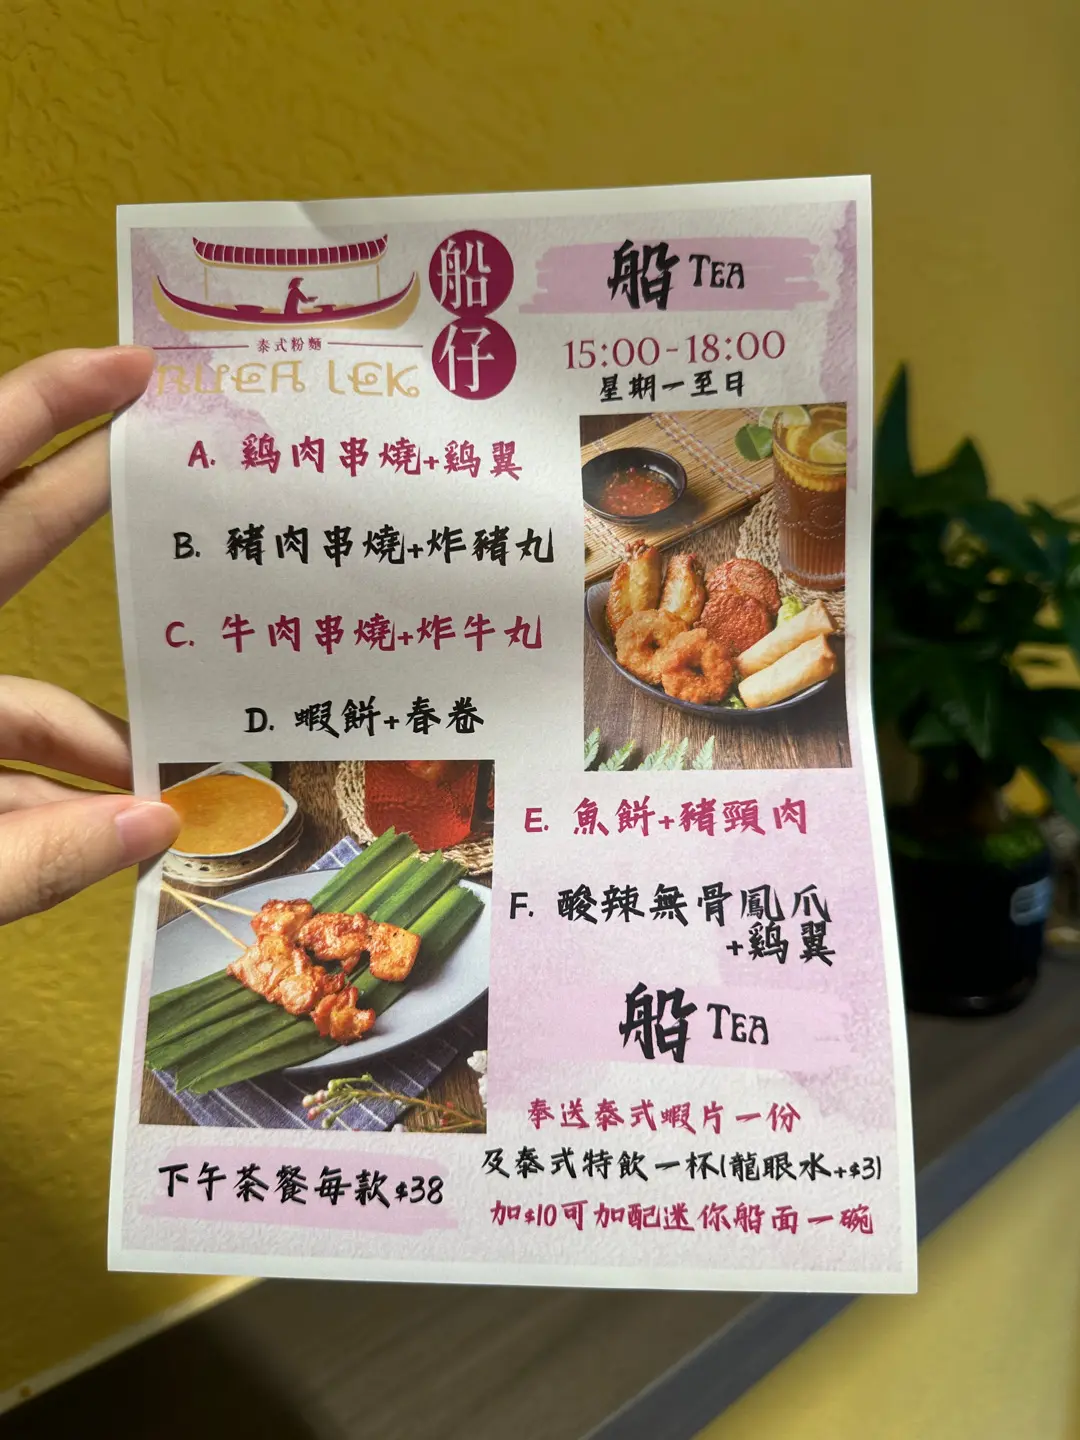 船仔
泰式粉麵
RUEA LEK
船 TEA
15:00-18:00
星期一至日
A. 鷄肉串燒+鷄翼
B. 豬肉串燒+炸豬丸
C. 牛肉串燒+炸牛丸
D. 蝦餅+春卷
E. 魚餅+豬頸肉
F. 酸辣無骨鳳爪
+鷄翼
船 TEA
奉送泰式蝦片一份
及泰式特飲一杯(龍眼水+$3)
加$10可加配迷你船面一碗
下午茶餐每款$38